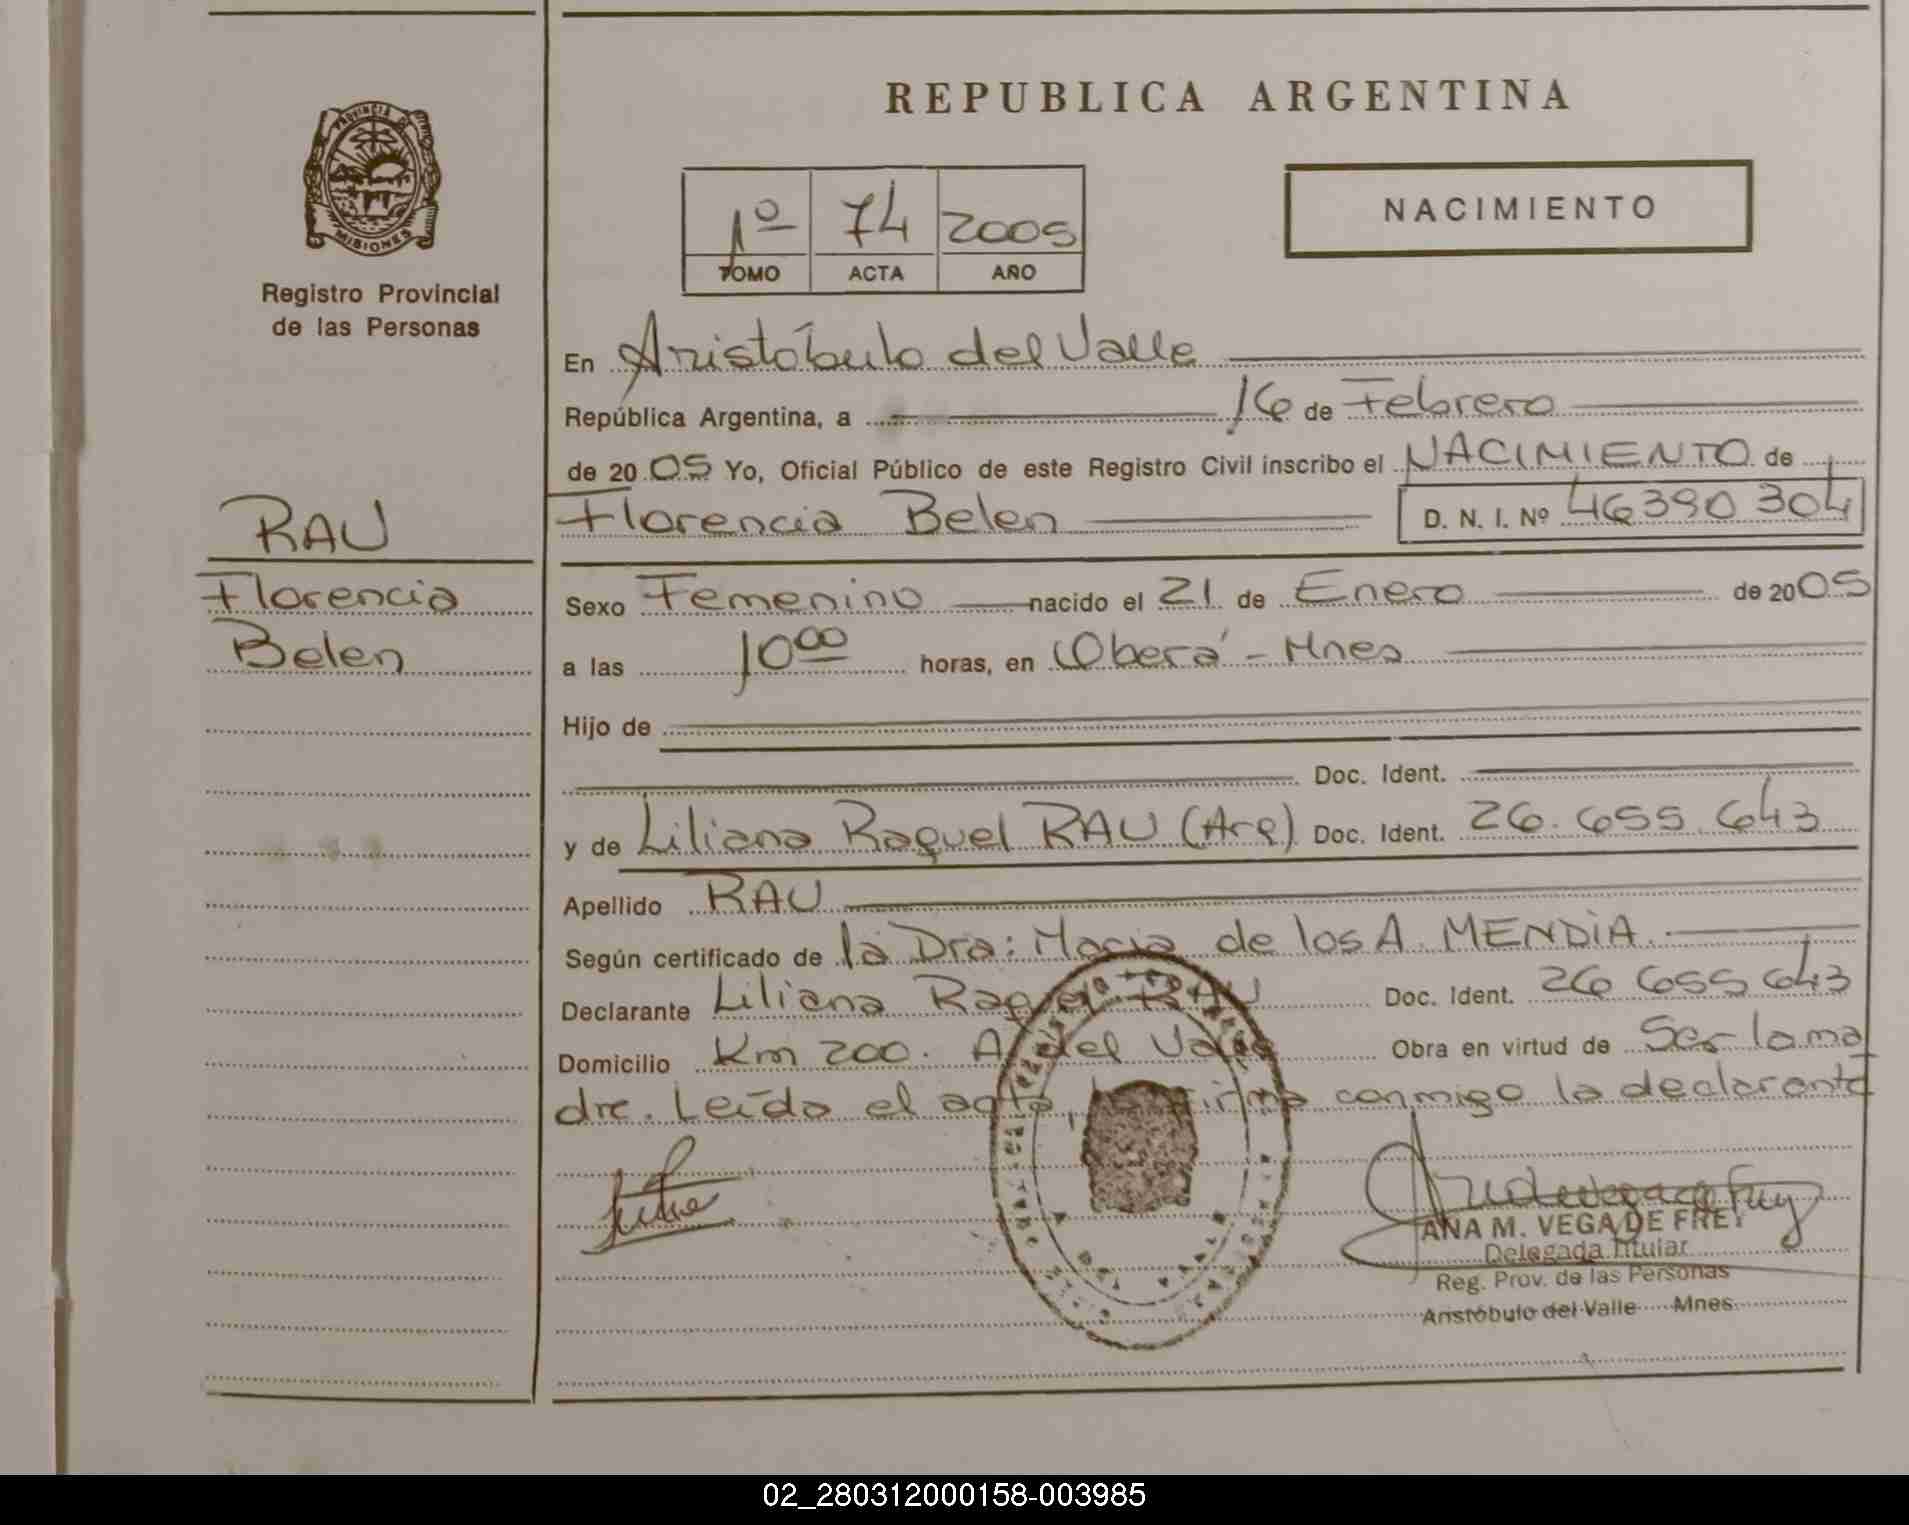 REPUBLICA ARGENTINA
PROVINCIA DE
MISIONES
Registro Provincial
de las Personas
1º 74 2005
TOMO ACTA AÑO
NACIMIENTO
En Aristóbulo del Valle
República Argentina, a 16 de Febrero
de 2005 Yo, Oficial Público de este Registro Civil inscribo el NACIMIENTO de
Florencia Belen D. N. I. Nº 46390 304
RAU
Florencia
Belen
Sexo Femenino nacido el 21 de Enero de 2005
a las 10 00 horas, en Oberá - Mnes
Hijo de
Doc. Ident.
y de Liliana Raquel RAU (Arg) Doc. Ident. 26.655.643
Apellido RAU
Según certificado de la Dra: Maria de los A. MENDIA
Declarante Liliana Raquel RAU Doc. Ident. 26 655 643
Domicilio Km 200. A. del Valle Obra en virtud de Ser la ma
dre. Leída el acta, firma conmigo la declarante
ANA M. VEGA DE FREY
Delegada Titular
Reg. Prov. de las Personas
Aristóbulo del Valle Mnes.
02_280312000158-003985